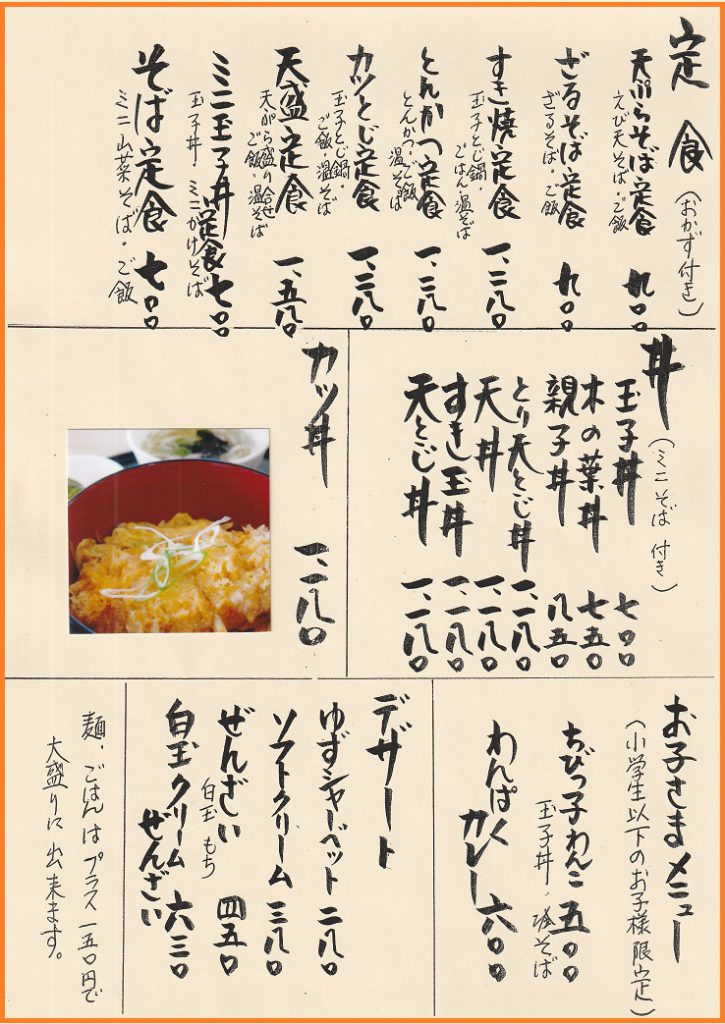 定食
(おかず付き)
天ぷらそば定食 九〇〇
えび天そば・ご飯
ざるそば定食 九〇〇
ざるそば・ご飯
すき焼定食 一、二八〇
玉子とじ鍋・ごはん・温そば
とんかつ定食 一、二八〇
とんかつ・ご飯
温そば
カツとじ定食 一、二八〇
玉子とじ鍋・
ご飯・温そば
天盛定食 一、五八〇
天ぷら盛り合せ
ご飯・温そば
ミニ玉子丼定食 七〇〇
玉子丼 ミニかけそば
そば定食 七〇〇
ミニ山菜そば・ご飯
丼
(ミニそば付き)
玉子丼 七〇〇
木の葉丼 七五〇
親子丼 八五〇
とり天とじ丼 一、一八〇
天丼 一、一八〇
すきし玉丼 一、一八〇
天とじ丼 一、一八〇
カツ丼 一、一八〇
お子さまメニュー
(小学生以下のお子様限定)
ちびっ子わんこ 五〇〇
玉子丼・そば
わんぱく
カレー 六〇〇
デザート
ゆずシャーベット 二八〇
ソフトクリーム 三八〇
ぜんざい 四五〇
白玉 もち
白玉クリーム
ぜんざい 六三〇
麺、ごはんはプラス一五〇円で
大盛りに出来ます。